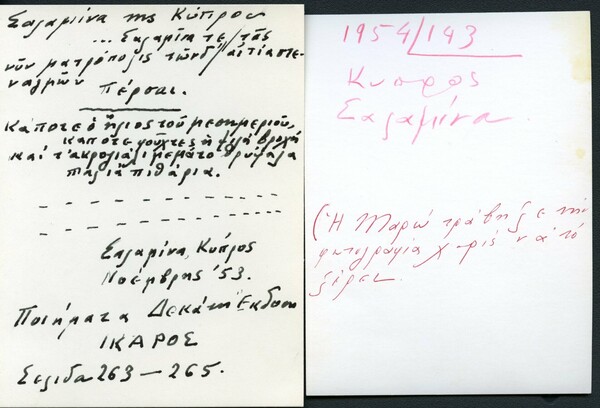 Σαλαμίνα της Κύπρος
... Σαλαμῖνα τε / τᾶς
νῦν ματρόπολις τῶνδ' / αἰτία στε-
ναγμῶν
Πέρσαι.
Κάποτε ὁ ἥλιος τοῦ μεσημεριοῦ,
κάποτε φοῦχτες ἡ ψιλή βροχή
καί τ' ἀκρογιάλι γεμάτο θρύψαλα
παλιά πιθάρια.
Σαλαμίνα, Κύπρος
Νοέμβρης '53.
Ποιήματα Δεκάτη Ἔκδοση
ΙΚΑΡΟΣ
Σελίδα 263 — 265.
1954/143
Κυπρος
Σαλαμίνα
(Ἡ Μαρώ τράβηξε τήν
φωτογραφία χωρίς νά τό
ξέρει.